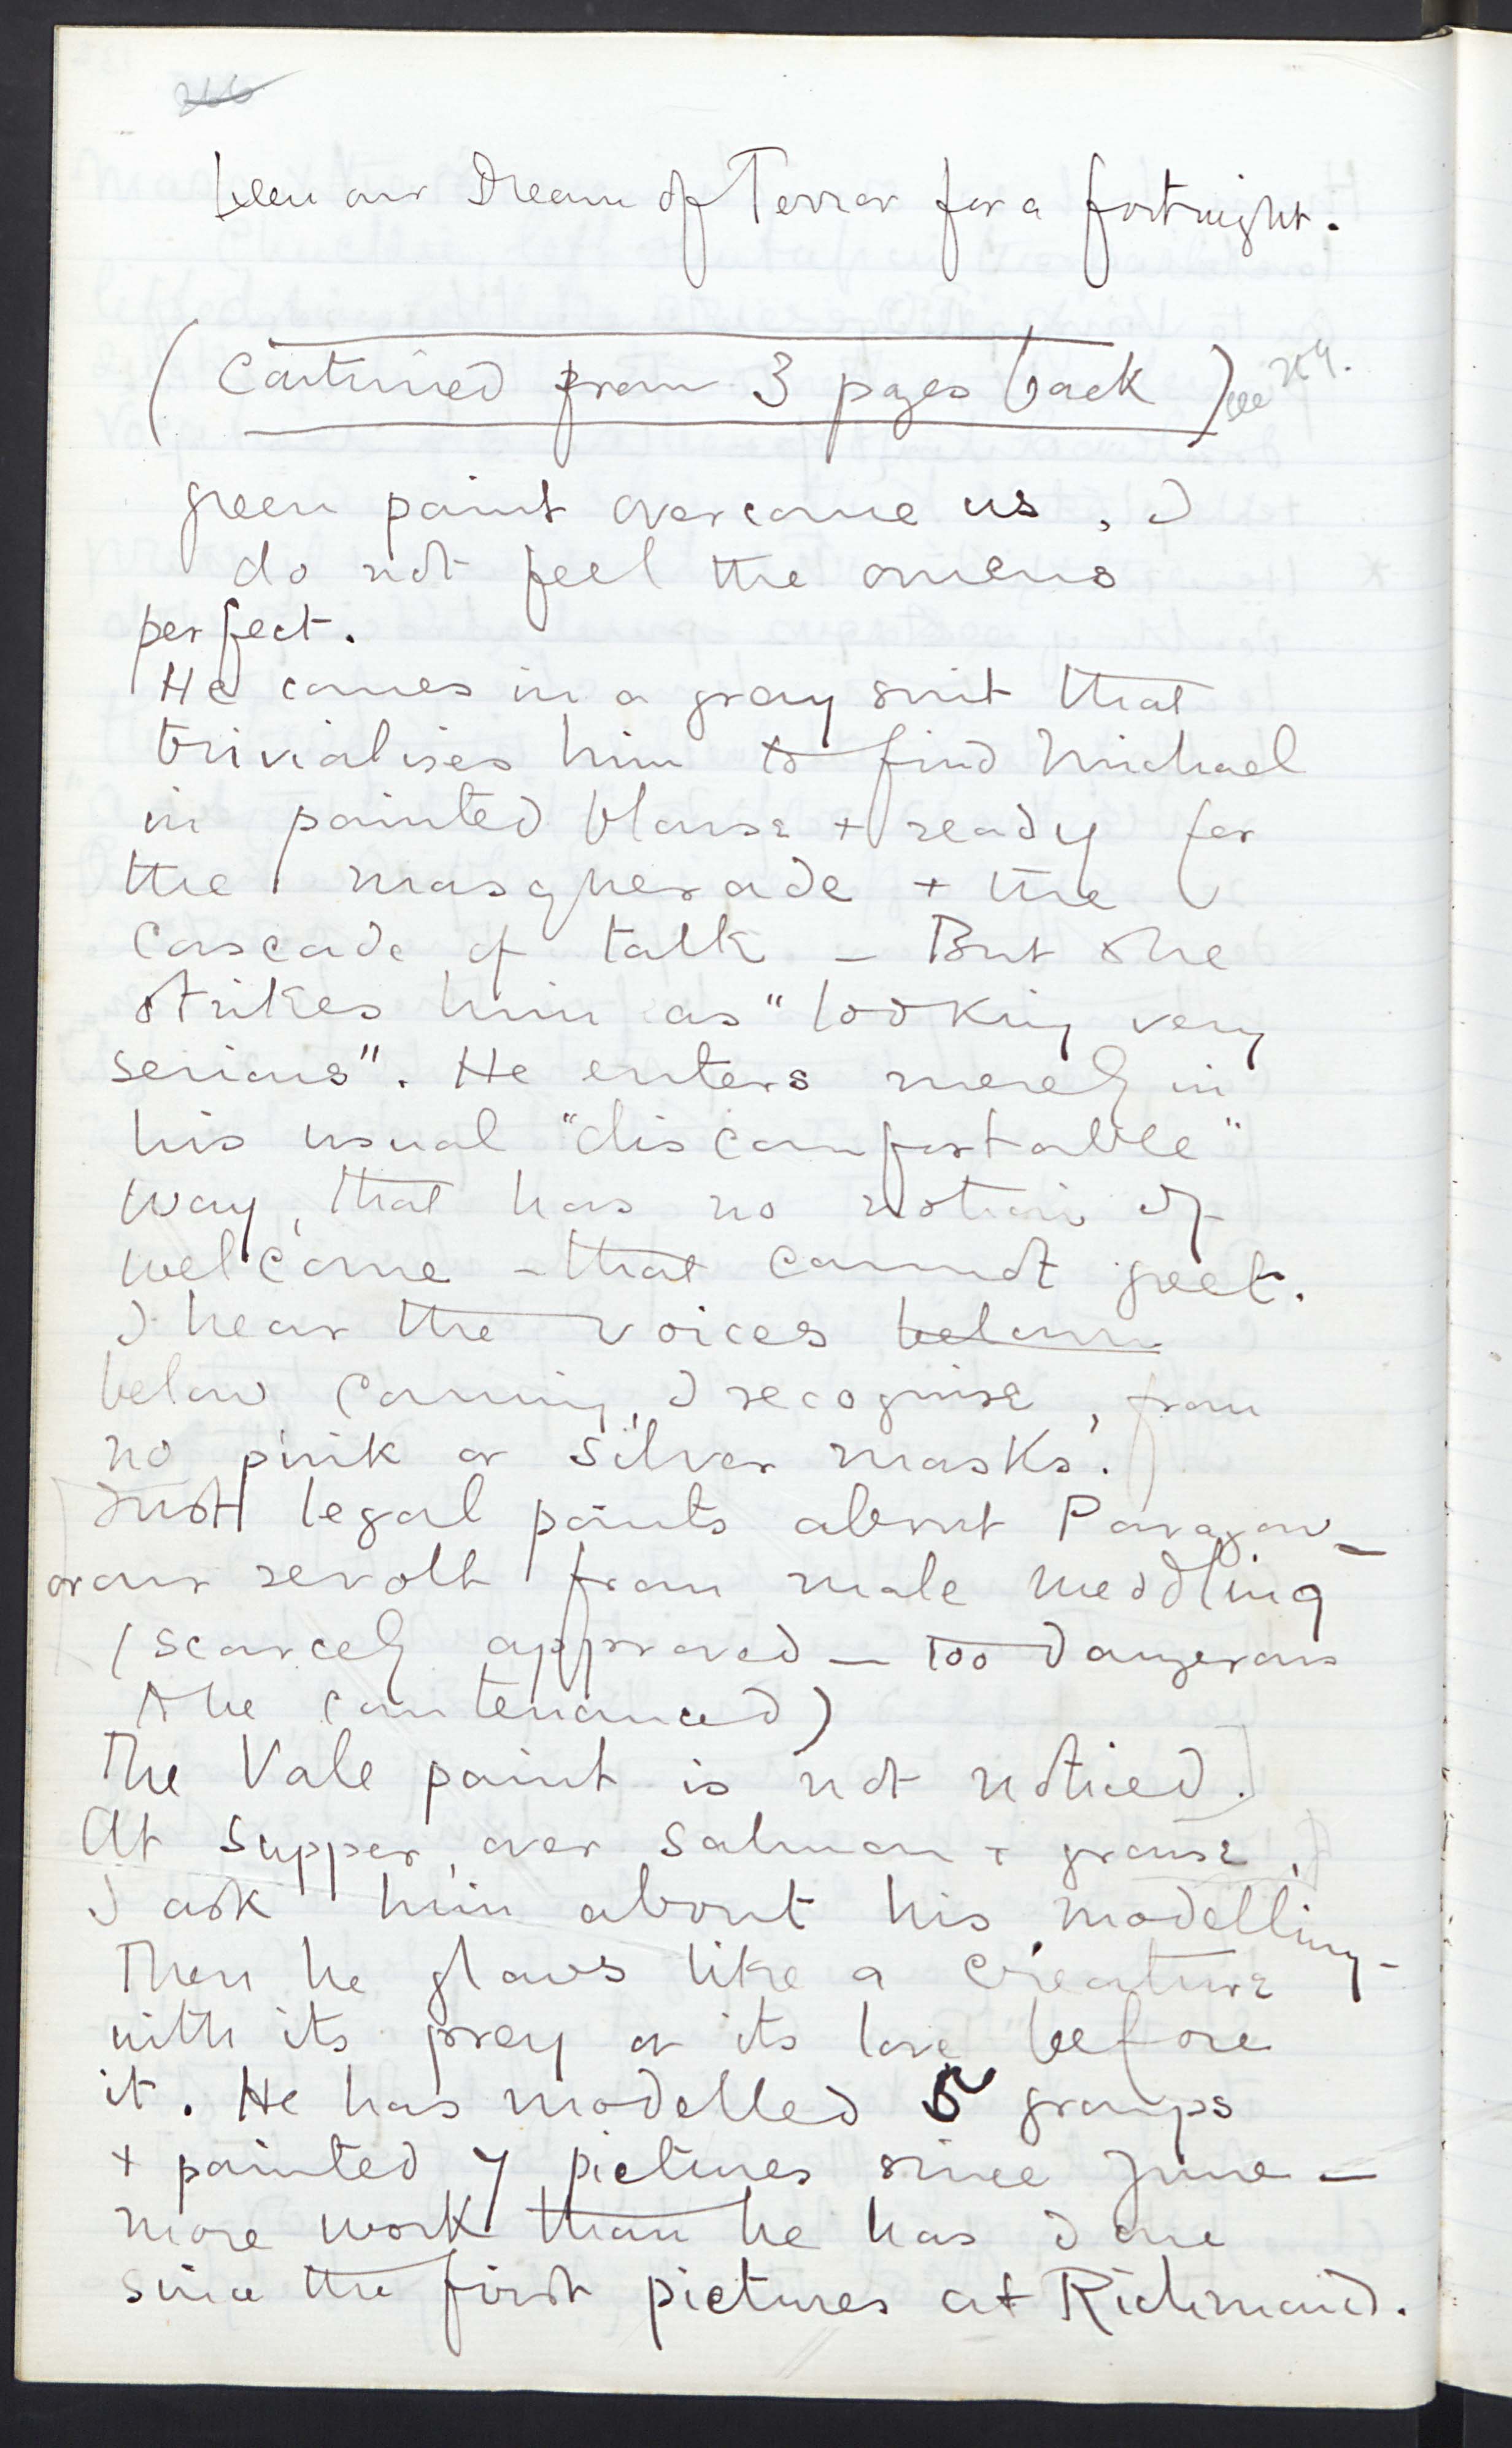 266
been our Dream of Terror for a fortnight.
(Continued from 3 pages back) see
green paint overcame us, I
do not feel the omens
perfect.
He comes in a gray suit that
trivialises him to find Michael
in painted blouse + ready for
the masquerade + the
cascade of talk – But she
strikes him as "looking very
serious". He enters merely in
his usual "discomfortable"
way, that has no notion of
welcome – that cannot greet.
I hear the voices
below coming, I recognise, from
no pink or silver masks.
Just legal points about Paragon –
or our revolt from male meddling
(scarcely approved – too dangerous
to be countenanced)
The Vale paint is not noticed.]
At supper, over salmon + grouse,
I ask him about his modelling –
Then he glows like a creature
with its prey or its love before
it. He has modelled 5 groups
+ painted 7 pictures since June –
more work than he has done
since the first pictures at Richmond.